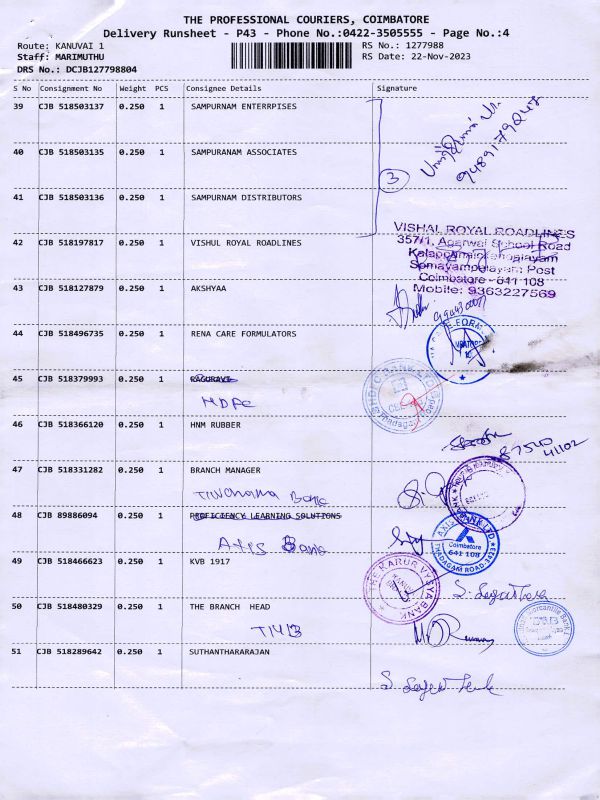 THE PROFESSIONAL COURIERS, COIMBATORE
Delivery Runsheet - P43 - Phone No.:0422-3505555 - Page No.:4
Route: KANUVAI 1
RS No.: 1277988
Staff: MARIMUTHU
RS Date: 22-Nov-2023
DRS No.: DCJB127798804
S No Consignment No Weight PCS Consignee Details Signature
39 CJB 518503137 0.250 1 SAMPURNAM ENTERRPISES
40 CJB 518503135 0.250 1 SAMPURANAM ASSOCIATES
3
41 CJB 518503136 0.250 1 SAMPURNAM DISTRIBUTORS
VISHAL ROYAL ROADLINES
42 CJB 518197817 0.250 1 VISHUL ROYAL ROADLINES
357/1, Agarwal School Road
Somayampalayam Post
Coimbatore - 641 108
Mobile: 9363227569
43 CJB 518127879 0.250 1 AKSHYAA
44 CJB 518496735 0.250 1 RENA CARE FORMULATORS
45 CJB 518379993 0.250 1
HDFC
HDFC BANK
46 CJB 518366120 0.250 1 HNM RUBBER
87540
41102
47 CJB 518331282 0.250 1 BRANCH MANAGER
Bank
48 CJB 89886094 0.250 1 PROFICIENCY LEARNING SOLUTIONS
Axis Bank
AXIS BANK LTD
Coimbatore
641 108
THADAGAM ROAD
49 CJB 518466623 0.250 1 KVB 1917
THE KARUR VYSYA BANK
50 CJB 518480329 0.250 1 THE BRANCH HEAD
TMB
Mercantile Bank
51 CJB 518289642 0.250 1 SUTHANTHARARAJAN